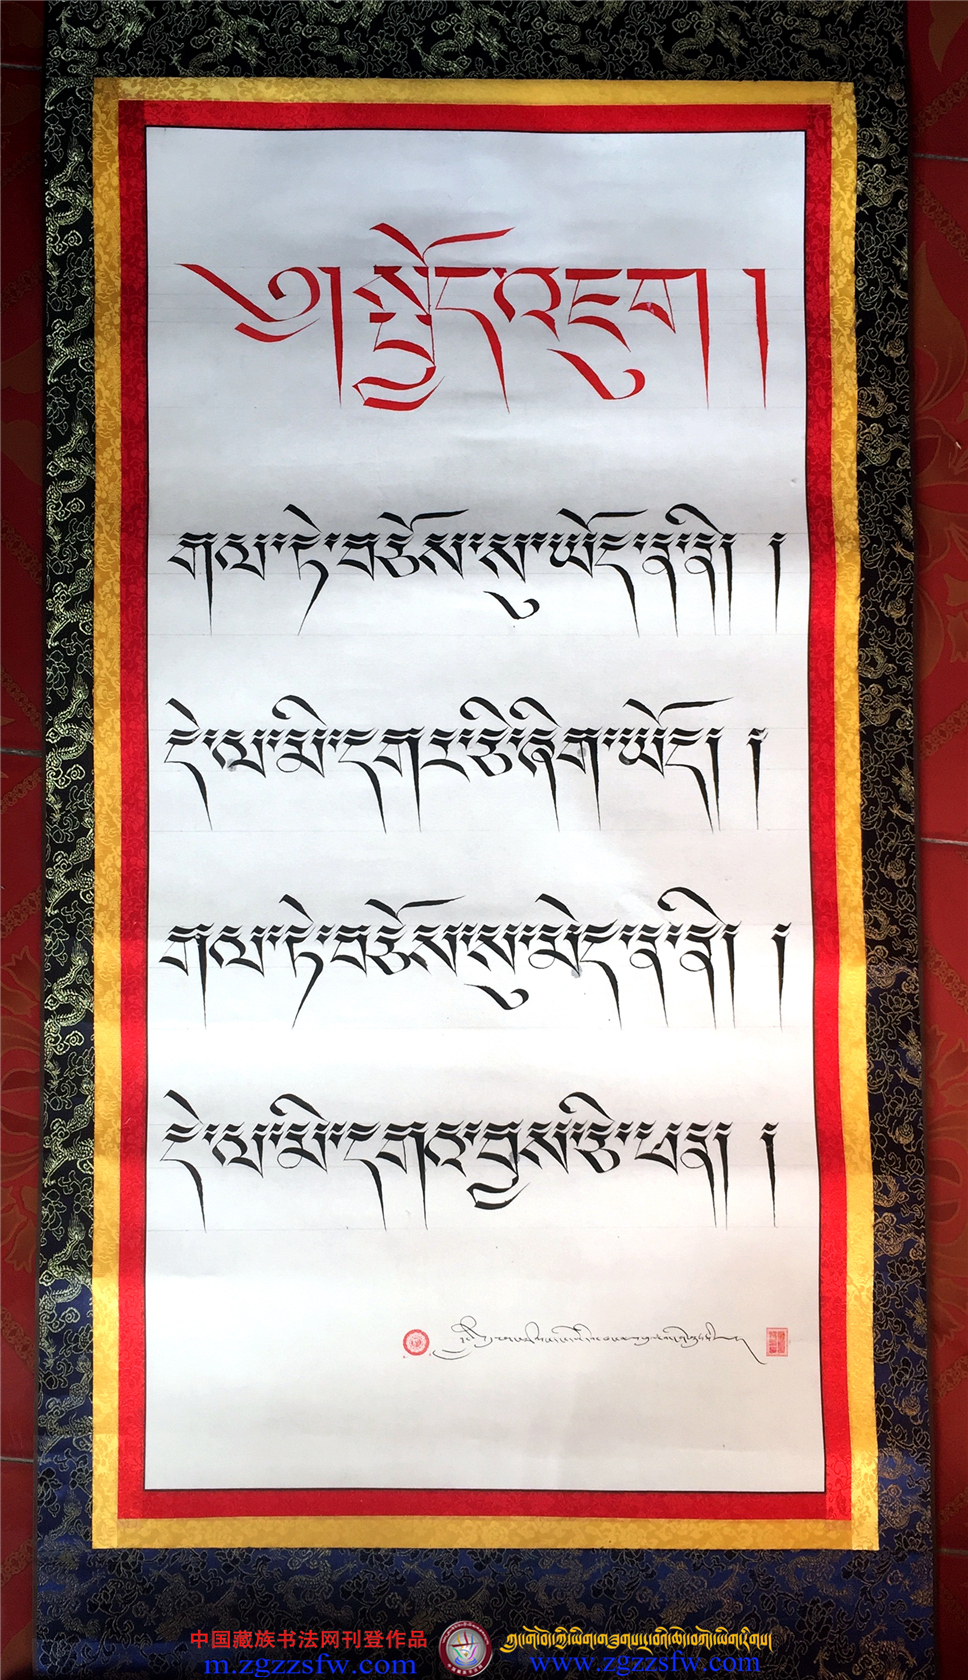 ༄༅། སྤྱོད་འཇུག །
གལ་ཏེ་བཅོས་སུ་ཡོད་ན་ནི། །
དེ་ལ་མི་དགར་ཅི་ཞིག་ཡོད། །
གལ་ཏེ་བཅོས་སུ་མེད་ན་ནི། །
དེ་ལ་མི་དགའ་བྱས་ཅི་ཕན། །
中国藏族书法网刊登作品
m.zgzzsfw.com
www.zgzzsfw.com